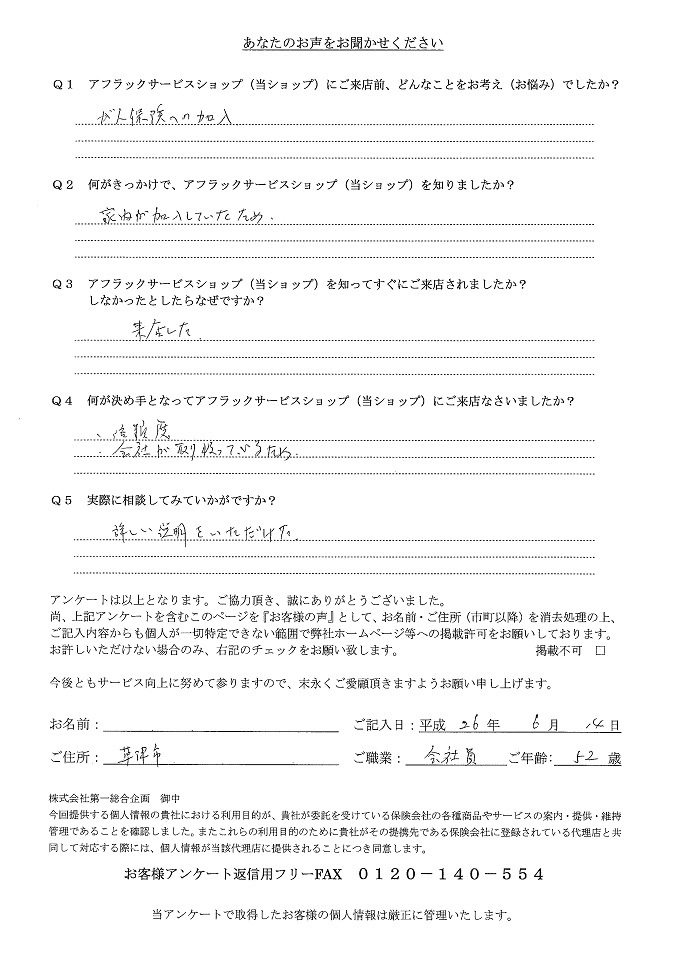 あなたのお声をお聞かせください
Q1 アフラックサービスショップ(当ショップ)にご来店前、どんなことをお考え(お悩み)でしたか?
がん保険への加入
Q2 何がきっかけで、アフラックサービスショップ(当ショップ)を知りましたか?
家ぬが加入していたため.
Q3 アフラックサービスショップ(当ショップ)を知ってすぐにご来店されましたか?
しなかったとしたらなぜですか?
来店した.
Q4 何が決め手となってアフラックサービスショップ(当ショップ)にご来店なさいましたか?
、信頼度
、会社が取り扱っているため.
Q5 実際に相談してみていかがですか?
詳しい説明をいただけた.
アンケートは以上となります。ご協力頂き、誠にありがとうございました。
尚、上記アンケートを含むこのページを『お客様の声』として、お名前・ご住所(市町以降)を消去処理の上、
ご記入内容からも個人が一切特定できない範囲で弊社ホームページ等への掲載許可をお願いしております。
お許しいただけない場合のみ、右記のチェックをお願い致します。 掲載不可 □
今後ともサービス向上に努めて参りますので、末永くご愛顧頂きますようお願い申し上げます。
お名前: ご記入日:平成 26 年 6 月 14 日
ご住所: 草津市 ご職業: 会社員 ご年齢: 52 歳
株式会社第一総合企画 御中
今回提供する個人情報の貴社における利用目的が、貴社が委託を受けている保険会社の各種商品やサービスの案内・提供・維持
管理であることを確認しました。またこれらの利用目的のために貴社がその提携先である保険会社に登録されている代理店と共
同して対応する際には、個人情報が当該代理店に提供されることにつき同意します。
お客様アンケート返信用フリーFAX 0120-140-554
当アンケートで取得したお客様の個人情報は厳正に管理いたします。